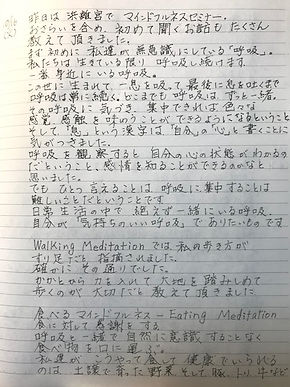 昨日は 浜離宮で マインドフルネスセミナー。
おさらいを含め、初めて聞くお話も たくさん
教えて頂きました。
まず初めに 私達が無意識にしている「呼吸」。
私たちは 生きている限り 呼吸し続けます。
一番身近にいる呼吸。
この世に 生まれて、一息を吸って、最後に息を吐くまで
呼吸は常に続く。どこまでも呼吸は、ずっと一緒。
その呼吸に 気づき、集中できれば、色々な
感覚 感触を味わうことができるようになるということ
そして、「息」という漢字は「自分」の「心」と書くことに
気がつきました。
呼吸を観察すると 自分の心の状態がわかるの
だということ、感情を知ることができるのかなと
思いました。
でも ひとつ言えることは 呼吸に集中することは
難しいことだということです
日常生活の中で 絶えず一緒にいる呼吸。
自分が「気持ちのいい呼吸」でありたいものです
Walking Meditation では、私の歩き方が
すり足だと、指摘されました。
確かに その通りでした。
かかとから力を入れて 大地を踏みしめて
歩くのが 大切だと 教えて頂きました
食べる マインドフルネス - Eating Meditation
食に対して 感謝をする。
呼吸と一緒で 自然に意識することなく
食べ物を 口に運ぶ。
私達が、こうやって食して 健康でいられる
のは 土壌で育った野菜 そして、豚、トリ、牛など